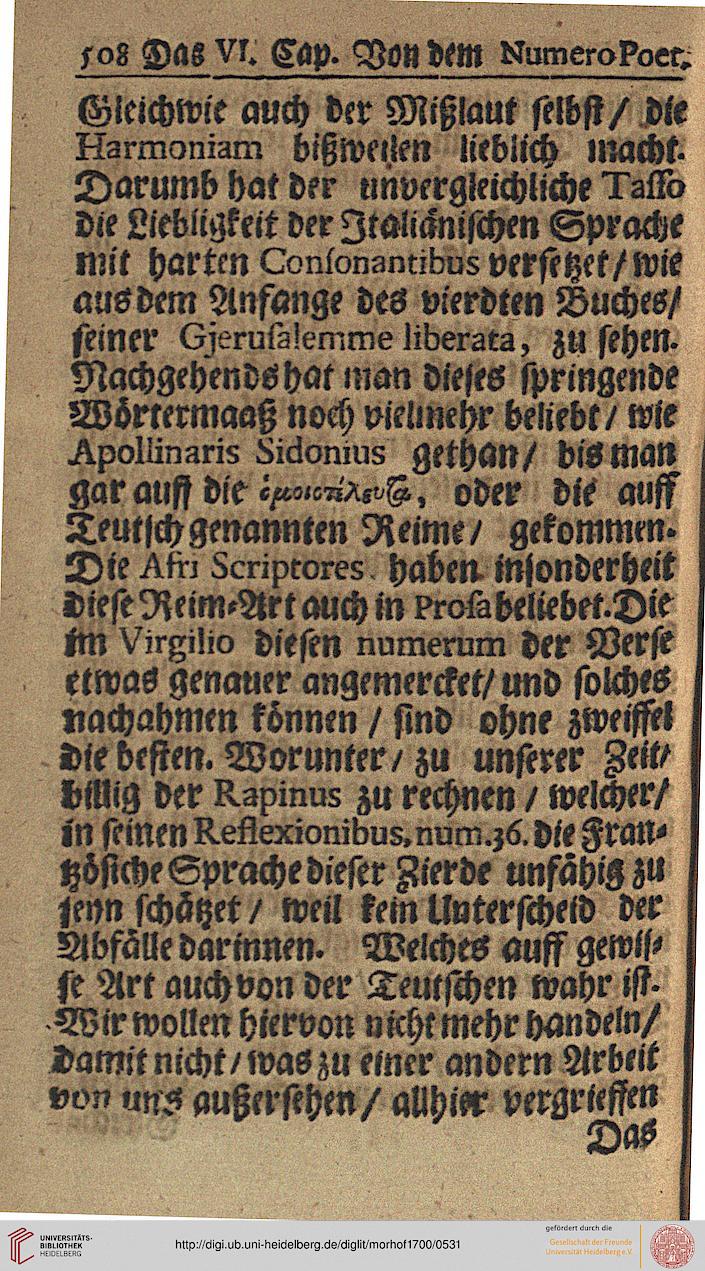 508 Das VI. Cap. Von dem Numero Poet.
Gleichwie auch der Mißlaut selbst / die
Harmoniam bißweilen lieblich macht.
Darumb hat der unvergleichliche Tasso
die Liebligkeit der Italiänischen Sprache
mit harten Consonantibus versetzet / wie
aus dem Anfange des vierdten Buches /
seiner Gjerusalemme liberata, zu sehen.
Nachgehends hat man dieses springende
Wörtermaaß noch vielmehr beliebt / wie
Apollinaris Sidonius gethan / bis man
gar auff die ὁμοιοτέλευτα, oder die auff
Teutsch genannten Reime / gekommen.
Die Afri Scriptores haben insonderheit
diese Reim-Art auch in Prosa beliebet. Die
im Virgilio diesen numerum der Verse
etwas genauer angemercket / und solches
nachahmen können / sind ohne zweiffel
die besten. Worunter / zu unserer Zeit /
billig der Rapinus zu rechnen / welcher /
in seinen Reflexionibus, num. 36. die Fran-
tzösische Sprache dieser Zierde unfähig zu
seyn schätzet / weil kein Unterscheid der
Abfälle darinnen. Welches auff gewis-
se Art auch von der Teutschen wahr ist.
Wir wollen hiervon nicht mehr handeln /
damit nicht / was zu einer andern Arbeit
von uns außersehen / allhier vergrieffen
Das
UNIVERSITÄTS-
BIBLIOTHEK
HEIDELBERG
http://digi.ub.uni-heidelberg.de/diglit/morhof1700/0531
gefördert durch die
Gesellschaft der Freunde
Universität Heidelberg e.V.